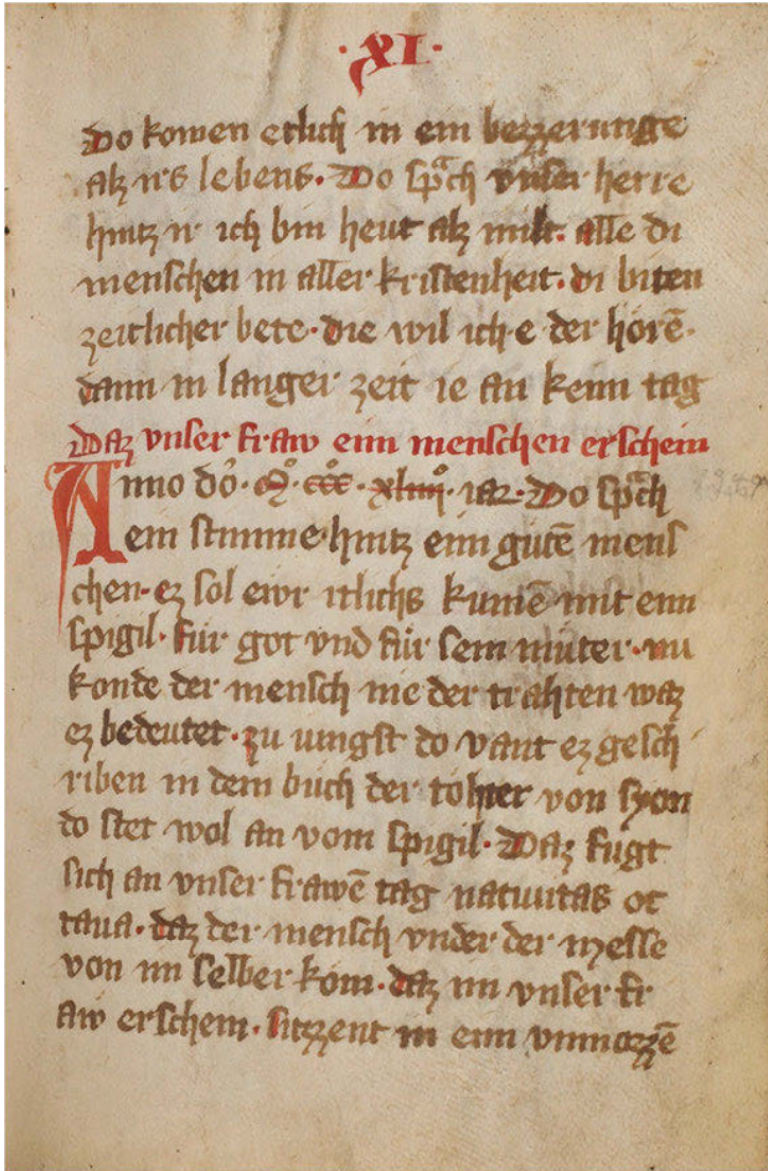 ·XI·
Do komen etlich in ein bezzerunge
alz irs lebens. Do sp͛ch vnser herre
hintz ir ich bin heut alz milt. alle di
menschen in aller kristenheit. di biten
zeitlicher bete. die wil ich e der hörē.
dann in langer zeit ie an keim tag
Daz vnser fraw eim menschen erschein
Anno dō. Mͦ. cccͦ. xliiijͦ. iar. Do spᵃch
ein stimme hintz eim gůtē mens
chen. ez sol ewr itlichs kumē mit eim
spigil. für got vnd für sein můter. nu
konde der mensch nie der trahten waz
ez bedeutet. zu iungst do vant ez gesch
riben in dem bůch der tohter von syon
do stet wol an vom spigil. Daz fugt
sich an vnser frawē tag natiuitas oc
taua. daz der mensch vnder der messe
von im selber kom. daz im vnser fr
aw erschein. sitzzent in eim vnmazzē